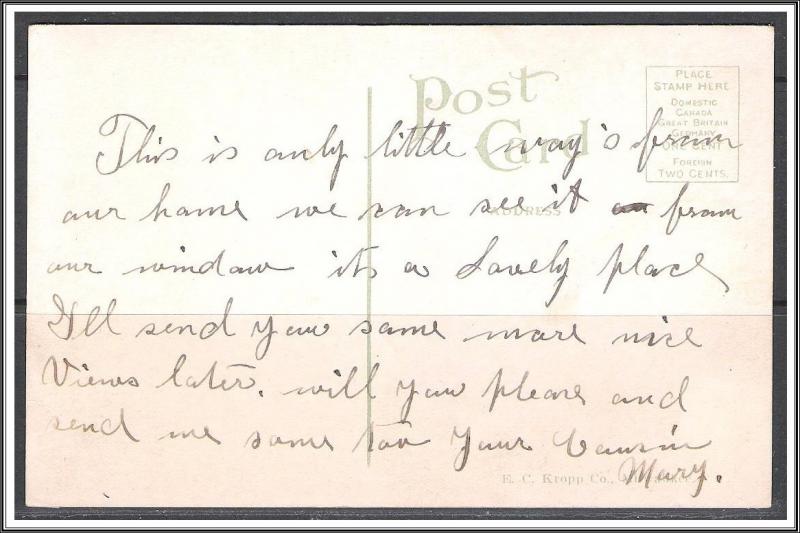 Post
Card
PLACE
STAMP HERE
DOMESTIC
CANADA
GREAT BRITAIN
GERMANY
ONE CENT
FOREIGN
TWO CENTS.
ADDRESS
This is only little way's from
our home we can see it from
our window its a Lovely place
I'll send you some more nice
Views later. will you please and
send me some too Your Cousin
Mary.
E. C. Kropp Co.,